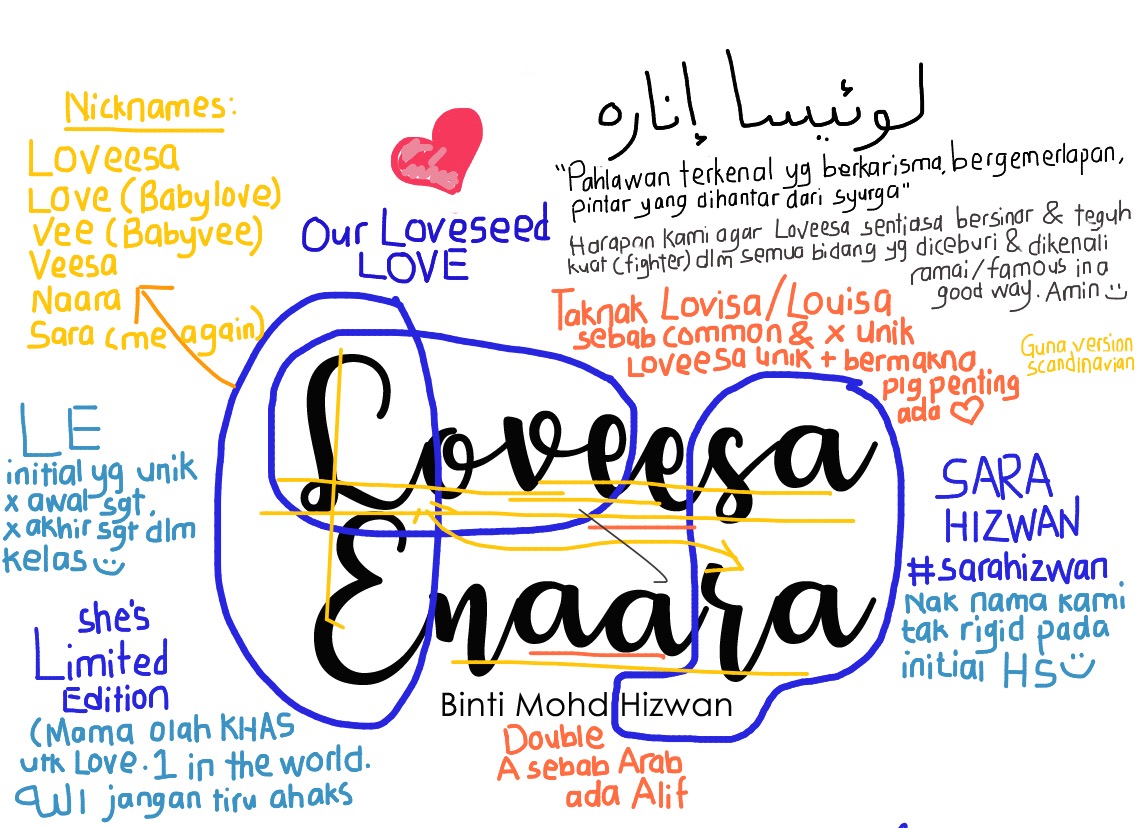 Nicknames:
Loveesa
Love (Babylove)
Vee (Babyvee)
Veesa
Naara
Sara (me again)
Our Loveseed
LOVE
لوئيسا إناره
"Pahlawan terkenal yg berkarisma, bergemerlapan,
pintar yang dihantar dari syurga"
Harapan kami agar Loveesa sentiasa bersinar & teguh
kuat (fighter) dlm semua bidang yg diceburi & dikenali
ramai/famous in a
good way. Amin
Taknak Lovisa/Louisa
sebab common & x unik
Loveesa unik + bermakna
plg penting
ada
Guna version
scandinavian
LE
initial yg unik
x awal sgt,
x akhir sgt dlm
kelas
Loveesa
Enaara
Binti Mohd Hizwan
SARA
HIZWAN
#sarahizwan
Nak nama kami
tak rigid pada
initial HS
she's
Limited
Edition
(Mama olah KHAS
utk Love. 1 in the world.
jangan tiru ahaks
Double
A sebab Arab
ada Alif